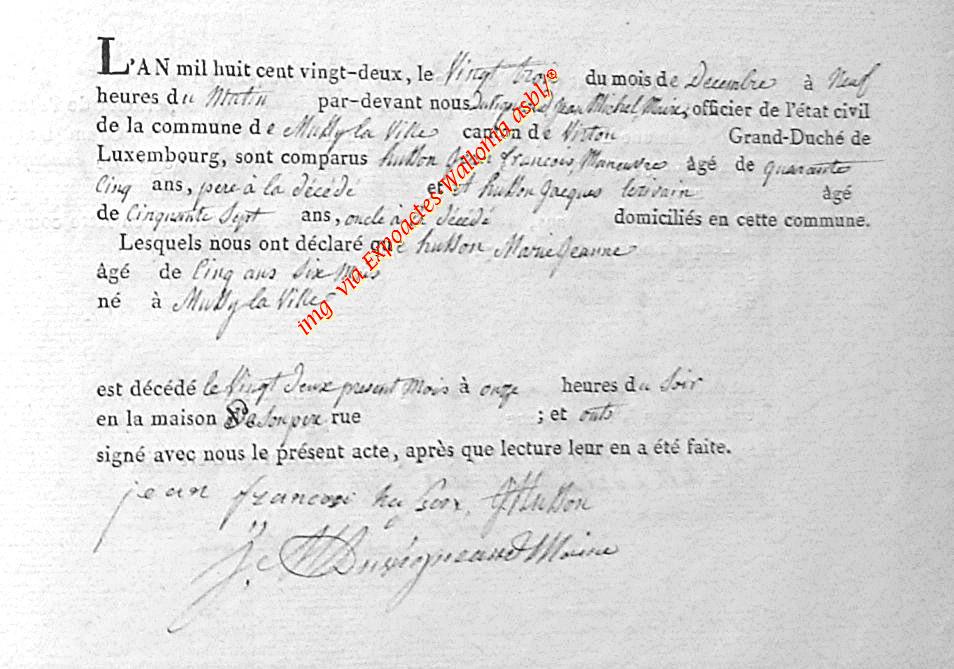 L'AN mil huit cent vingt-deux, le Vingt trois du mois de Decembre à Neuf
heures du Matin par-devant nous Jean Michel Maire, officier de l'état civil
de la commune de Mussy la Ville canton de Virton Grand-Duché de
Luxembourg, sont comparus husson Jean francois, Manœuvre âgé de quarante
Cinq ans, pere à la décédé et husson Jacques Ecrivain âgé
de Cinquante Sept ans, oncle à la décédé domiciliés en cette commune.
Lesquels nous ont déclaré que husson Marie Jeanne
âgé de Cinq ans Six Mois
né à Mussy la Ville
est décédé le Vingt deux present Mois à onze heures du Soir
en la maison De Son pere rue ; et onts
signé avec nous le présent acte, après que lecture leur en a été faite.
jean francoi JHusson
Maire
img via Expoactes-Wallonia asbl/©